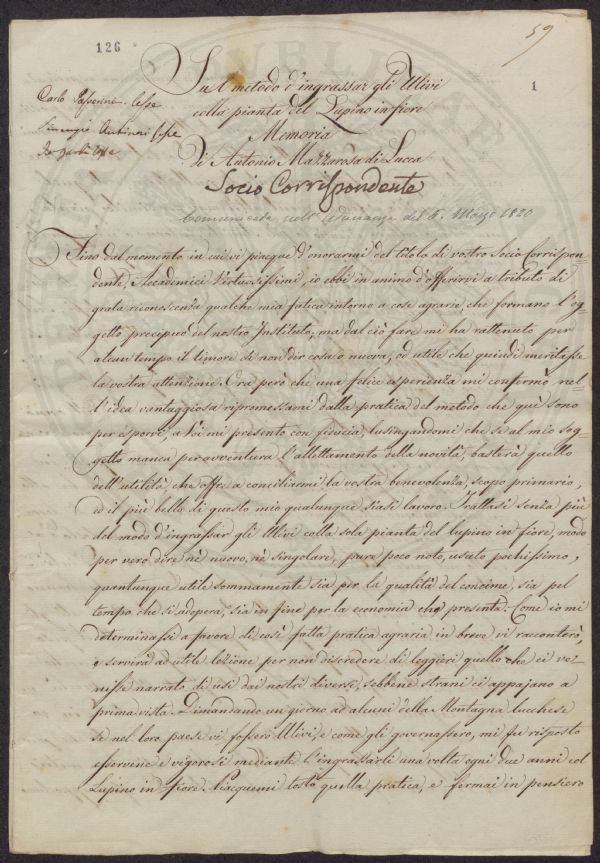 126
59
1
Sul metodo d'ingrassar gli Ulivi
colla pianta del Lupino in fiore
Memoria
di Antonio Mazzarosa di Lucca
Socio Corrispondente
Comunicata nell' Adunanza del 5. Marzo 1820
Carlo Passerini lesse
Fino dal momento in cui vi piacque d'onorarmi del titolo di vostro Socio Corrispon=
dente, Accademici Virtuosissimi, io ebbi in animo d'offerirvi a tributo di
grata riconoscenza qualche mia fatica intorno a cose agrarie, che formano l'og=
getto precipuo del nostro Instituto; ma dal ciò fare mi ha rattenuto per
alcun tempo il timore di non dir cosa o nuova, od utile che quindi meritasse
la vostra attenzione. Ora però che una felice esperienza mi confermò nel=
l'idea vantaggiosa ripromessami dalla pratica del metodo che quì sono
per esporvi, a Voi mi presento con fiducia, lusingandomi che se al mio sog=
getto manca per avventura l'allettamento della novità, basterà quello
dell'utilità, che offre a conciliarmi la vostra benevolenza, scopo primario,
ed il più bello di questo mio qualunque siasi lavoro. Trattasi senza più
del modo d'ingrassar gli Ulivi colla sola pianta del lupino in fiore, modo
per vero dire nè nuovo, nè singolare, pure poco noto, usato pochissimo,
quantunque utile sommamente sia per la qualità del concime, sia pel
tempo che si adopera, sia in fine per la economia che presenta. Come io mi
determinassi a favore di così fatta pratica agraria in breve vi racconterò,
e servirà ad utile lezione per non discredere di leggieri quello che ci ve=
nisse narrato di usi dai nostri diversi, sebbene strani ci appajano a
prima vista. Dimandando un giorno ad alcuni della Montagna lucchese
se nel loro paese vi fossero Ulivi, e come gli governassero, mi fu risposto
esservene e vigorosi mediante l'ingrassarli una volta ogni due anni col
Lupino in fiore. Piacquemi tosto quella pratica, e fermai in pensiero